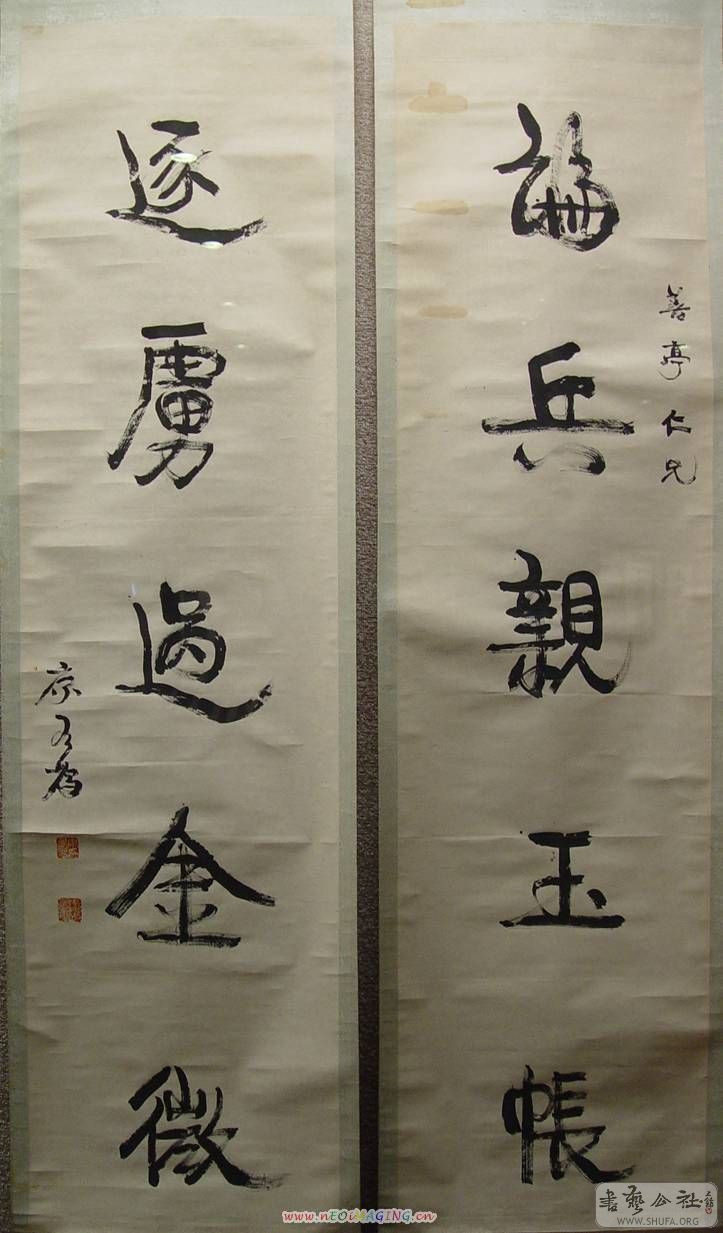 善亭仁兄
論兵親玉帳
逐虜過金微
康有為
www.nEOiMAGING.cn
書藝公社
WWW.SHUFA.ORG